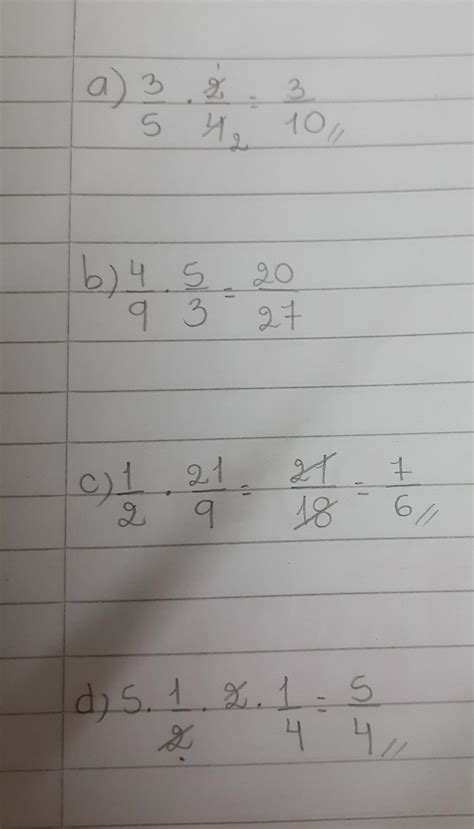 a) 3/5 · 2̶/4̶ 1/2 = 3/10 //
b) 4/9 · 5/3 = 20/27
c) 1/2 · 21/9 = 2̶1̶/1̶8̶ = 7/6 //
d) 5 · 1/2̶ · 2̶ · 1/4 = 5/4 //